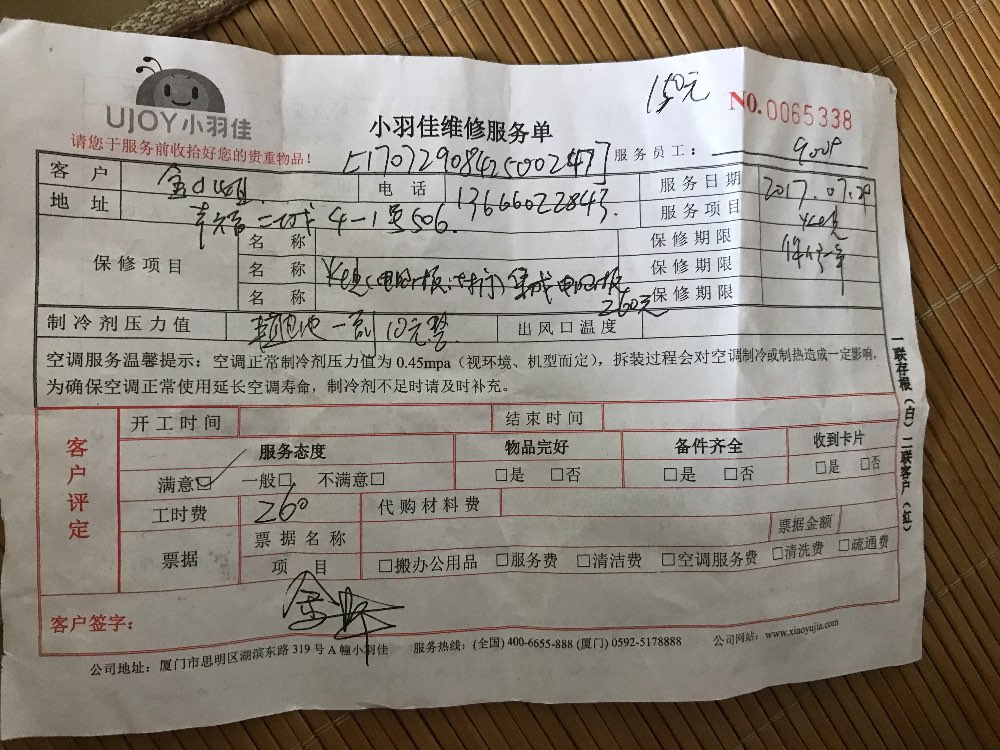 150元
NO.0065338
UJOY小羽佳
小羽佳维修服务单
请您于服务前收拾好您的贵重物品!
[17072908425002477]
服务员工:
客户
电话
13666022843.
服务日期
2017.07.29
地址
幸福二城4-1号506.
服务项目
保修项目
名称
保修期限
名称
集成电路板
保修期限
名称
260元
保修期限
制冷剂压力值
一副10元整
出风口温度
空调服务温馨提示:空调正常制冷剂压力值为0.45mpa(视环境、机型而定),拆装过程会对空调制冷或制热造成一定影响,
为确保空调正常使用延长空调寿命,制冷剂不足时请及时补充。
一联存根(白)二联客户(红)
客户评定
开工时间
结束时间
服务态度
物品完好
备件齐全
收到卡片
满意□ 一般□ 不满意□
□是 □否
□是 □否
□是 □否
工时费
260
代购材料费
票据
票据名称
票据金额
项目
□搬办公用品 □服务费 □清洁费 □空调服务费 □清洗费 □疏通费
客户签字:
公司地址:厦门市思明区湖滨东路319号A幢小羽佳 服务热线:(全国)400-6655-888(厦门)0592-5178888 公司网站:www.xiaoyujia.com